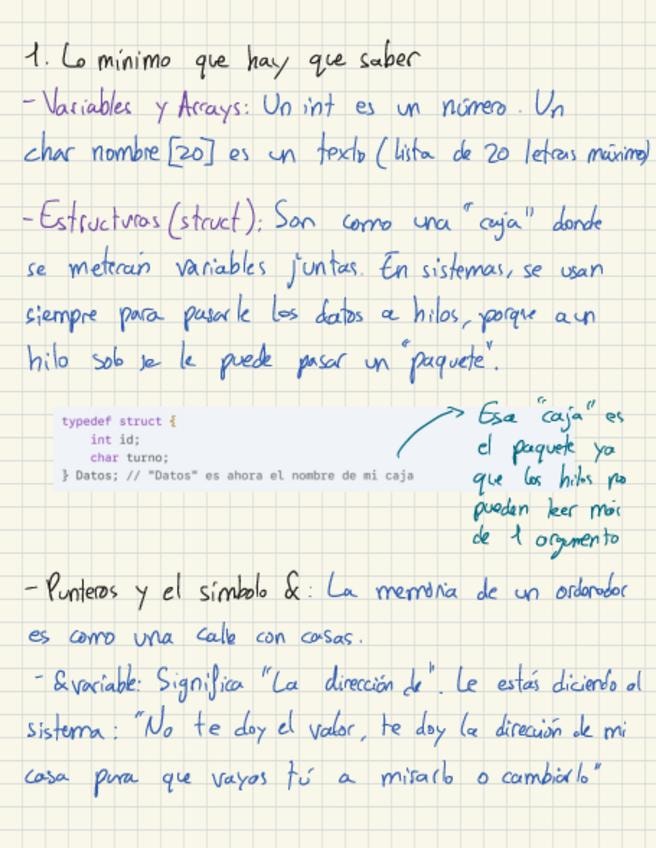 1. Lo mínimo que hay que saber
- Variables y Arrays: Un int es un número. Un
char nombre [20] es un texto (lista de 20 letras máximo)
- Estructuras (struct): Son como una "caja" donde
se meterán variables juntas. En sistemas, se usan
siempre para pasarle los datos a hilos, porque a un
hilo solo se le puede pasar un "paquete".
typedef struct {
int id;
char turno;
} Datos; // "Datos" es ahora el nombre de mi caja
Esa "caja" es
el paquete ya
que los hilos no
pueden leer más
de 1 argumento
- Punteros y el símbolo &: La memoria de un ordenador
es como una calle con casas.
- &variable: Significa "La dirección de". Le estás diciendo al
sistema: "No te doy el valor, te doy la dirección de mi
casa para que vayas tú a mirarlo o cambiarlo"